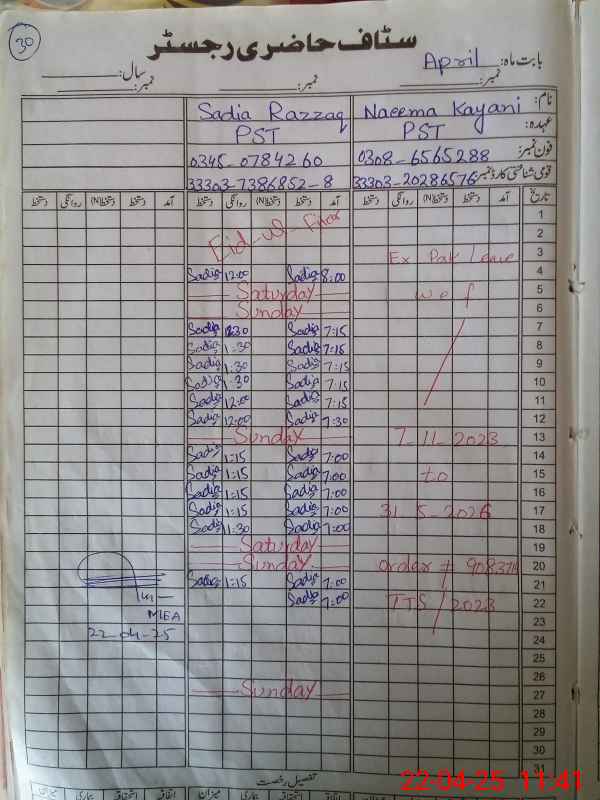 30
سٹاف حاضری رجسٹر
بابت ماہ: April نمبر: سال: نمبر:
نام: Naeema Kayani Sadia Razzaq
عہدہ: PST PST
فون نمبر: 0308-6565288 0345-0784260
قومی شناختی کارڈ نمبر 33303-20286576 33303-7386852-8
تاریخ آمد دستخط(N) روانگی دستخط آمد دستخط(N) روانگی دستخط آمد دستخط(N) روانگی دستخط
1
2 Eid-ul-Fitar
3 Ex Pak leave
4 Sadia 12:00 Sadia 8:00
5 Saturday w e f
6 Sunday
7 Sadia Sadia 7:15
8 Sadia 1:30 Sadia 7:15
9 Sadia 1:30 Sadia 7:15
10 Sadia 1:30 Sadia 7:15
11 Sadia 12:00 Sadia 7:15
12 Sadia 12:00 Sadia 7:30
13 Sunday 7-11-2023
14 Sadia 1:15 Sadia 7:00
15 Sadia 1:15 Sadia 7:00 to
16 Sadia 1:15 Sadia 7:00
17 Sadia 1:15 Sadia 7:00 31 5-2026
18 Sadia 11:30 Sadia 7:00
19 Saturday
20 Sunday order #
21 Sadia 1:15 Sadia 7:00
22 Sadia 7:00 TTS/2023
23 MEA
24 22-04-25
25
26
27 Sunday
28
29
30
31
تفصیل رخصت
اتفاقیہ استحقاقیہ بیماری میزان
22-04-25 11:41